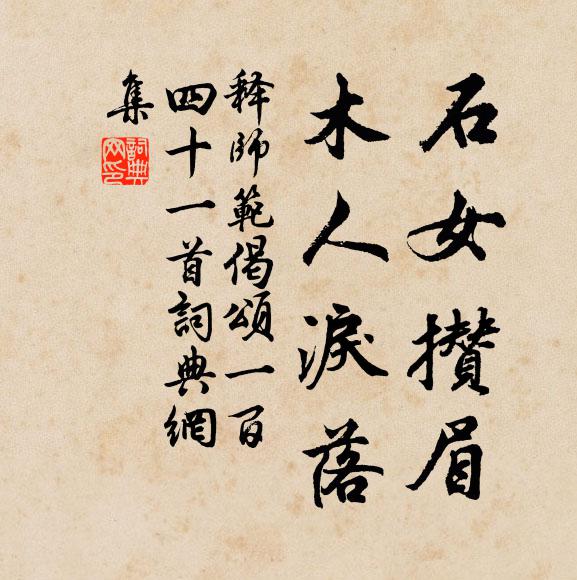 石女攢眉
木人淚落
释師範偈頌一百
四十一首詞典網
集
詞典網印